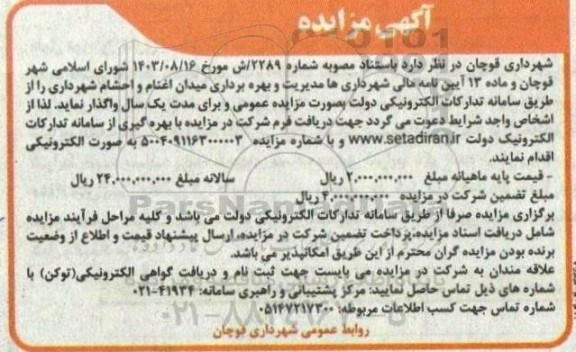 آگهی مزایده
شهرداری قوچان در نظر دارد باستناد مصوبه شماره ۲۲۸۹/ش مورخ ۱۴۰۳/۰۸/۱۶ شورای اسلامی شهر
قوچان و ماده ۱۳ آیین نامه مالی شهرداری ها مدیریت و بهره برداری میدان اغنام و احشام شهرداری را از
طریق سامانه تدارکات الکترونیکی دولت بصورت مزایده عمومی و برای مدت یک سال واگذار نماید. لذا از
اشخاص واجد شرایط دعوت می گردد جهت دریافت فرم شرکت در مزایده با بهره گیری از سامانه تدارکات
الکترونیک دولت www.setadiran.ir و با شماره مزایده ۵۰۰۴۰۹۱۱۶۳۰۰۰۰۰۳ به صورت الکترونیکی
اقدام نمایند.
- قیمت پایه ماهیانه مبلغ ۲,۰۰۰,۰۰۰,۰۰۰ ریال سالانه مبلغ ۲۴,۰۰۰,۰۰۰,۰۰۰ ریال
مبلغ تضمین شرکت در مزایده ۴,۰۰۰,۰۰۰,۰۰۰ ریال
برگزاری مزایده صرفا از طریق سامانه تدارکات الکترونیکی دولت می باشد و کلیه مراحل فرآیند مزایده
شامل دریافت اسناد مزایده،پرداخت تضمین شرکت در مزایده،ارسال پیشنهاد قیمت و اطلاع از وضعیت
برنده بودن مزایده گران محترم از این طریق امکانپذیر می باشد.
علاقه مندان به شرکت در مزایده می بایست جهت ثبت نام و دریافت گواهی الکترونیکی(توکن) با
شماره های ذیل تماس حاصل نمایید: مرکز پشتیبانی و راهبری سامانه: ۴۱۹۳۴-۰۲۱
شماره تماس جهت کسب اطلاعات مربوطه: ۰۵۱۴۷۲۱۷۳۰۰
روابط عمومی شهرداری قوچان